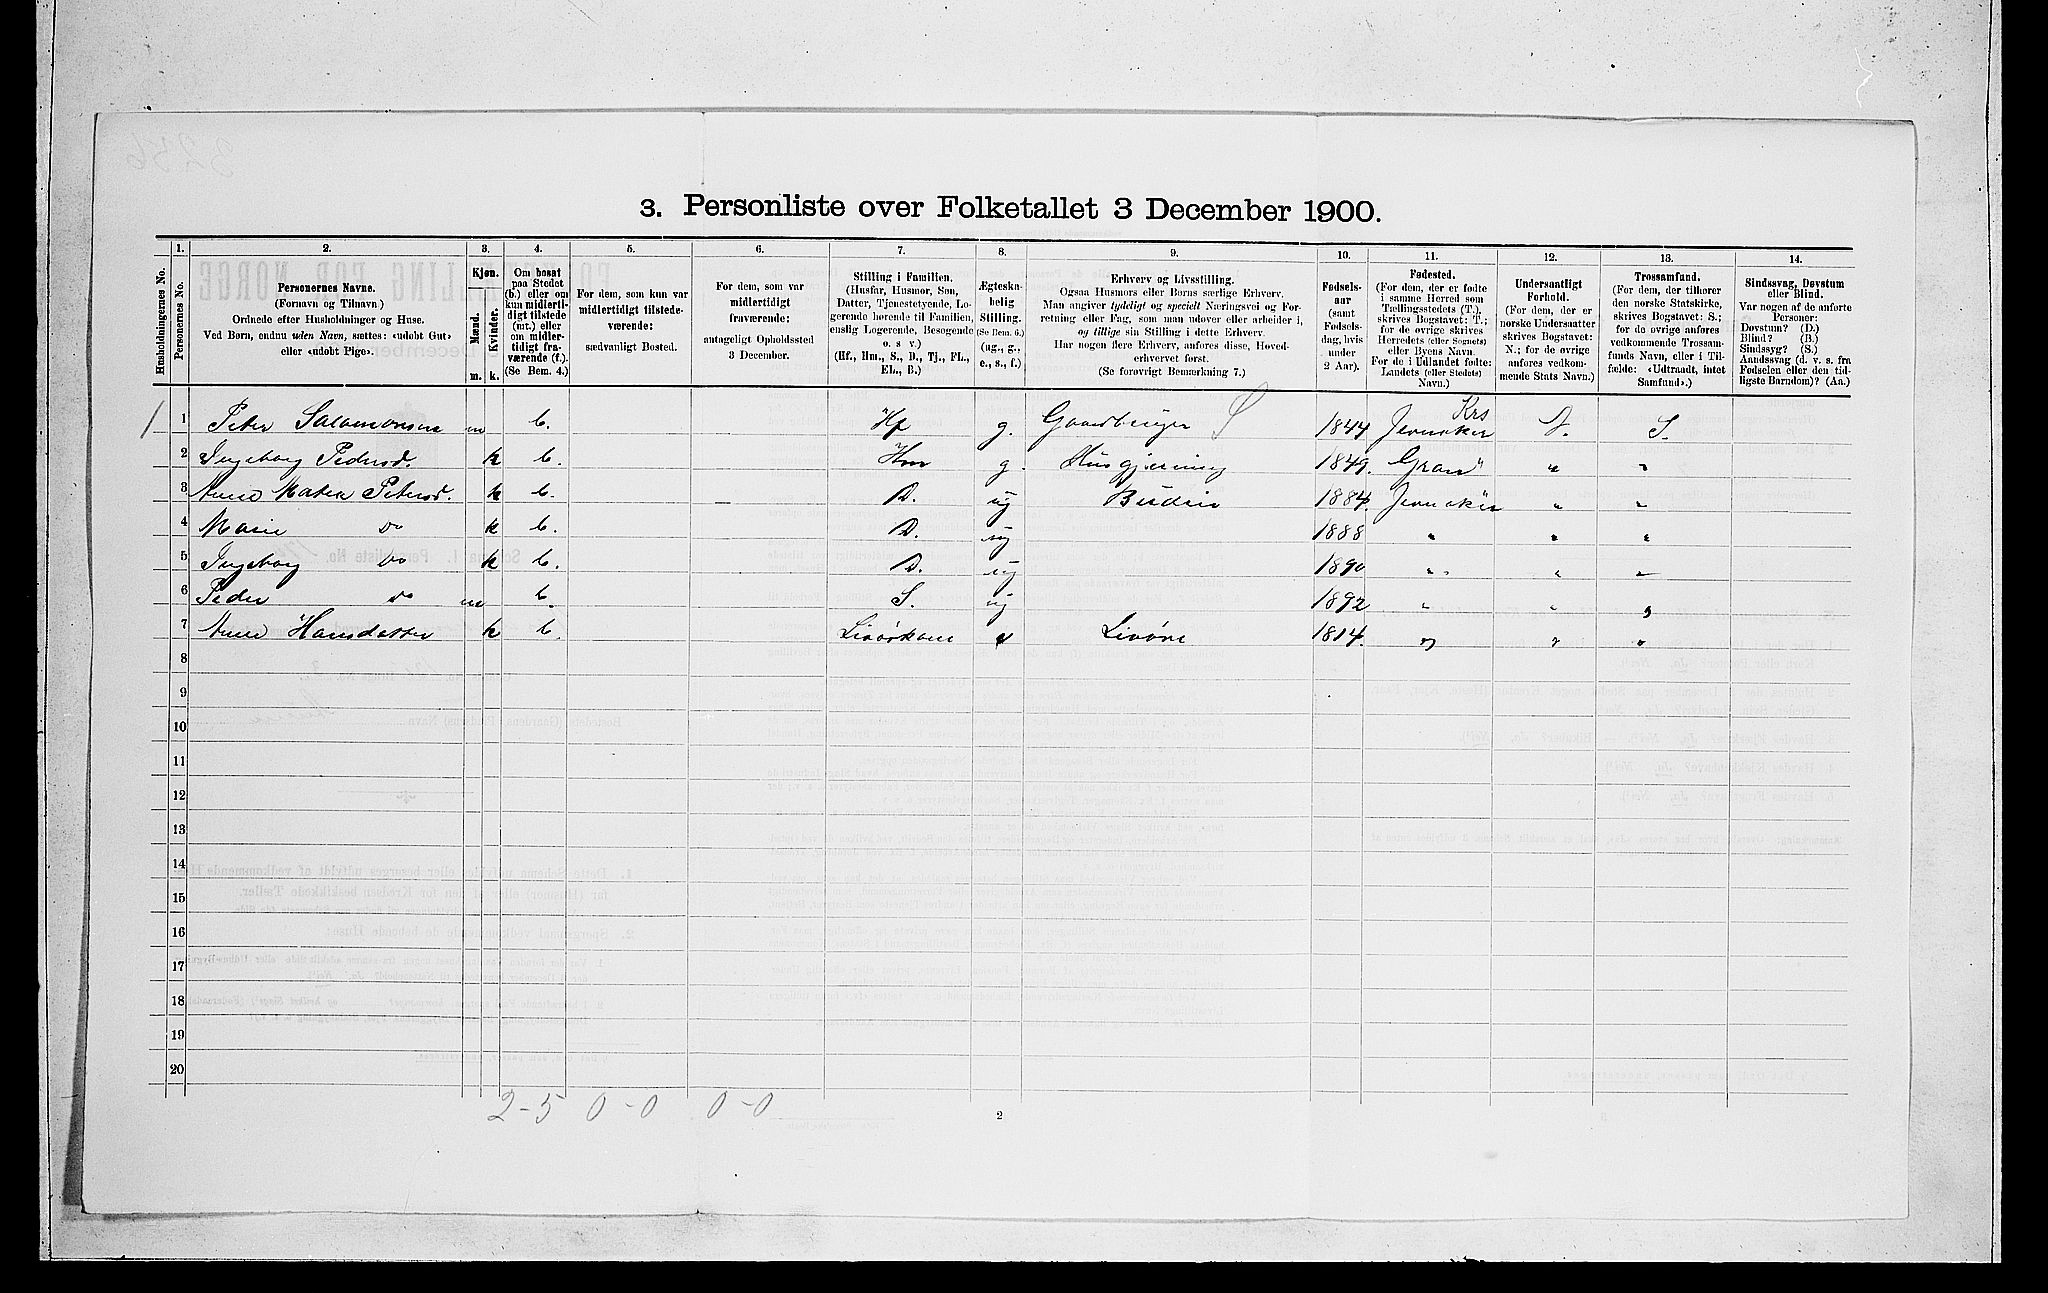 3. Personliste over Folketallet 3 December 1900.
1. 2. 3. 4. 5. 6. 7. 8. 9. 10. 11. 12. 13. 14.
Husholdningernes No.
Personernes No.
Personernes Navne.
(Fornavn og Tilnavn)
Ordnede efter Husholdninger og Huse.
Ved Børn, endnu uden Navn, sættes: «udøbt Gut»
eller «udøbt Pige».
Kjøn.
Mænd. Kvinder.
m. k.
Om bosat
paa Stedet
(b.) eller om
kun midlerti-
digt tilstede
(mt.) eller
om midler-
tidigt fra-
værende (f.).
(Se Bem. 4.)
For dem, som kun var
midlertidigt tilstede-
værende:
sædvanligt Bosted.
For dem, som var
midlertidigt
fraværende:
antageligt Opholdssted
3 December.
Stilling i Familien.
(Husfar, Husmor, Søn,
Datter, Tjenestetyende, Lo-
gerende hørende til Familien,
enslig Logerende, Besøgende
o. s. v.)
(Hf., Hm., S., D., Tj., FL.,
EL., B.)
Ægteska-
belig
Stilling.
(Se Bem. 6.)
(ug., g.,
e., s., f.)
Erhverv og Livsstilling.
Ogsaa Husmors eller Børns særlige Erhverv.
Man angiver tydeligt og specielt Næringsvei og For-
retning eller Fag, som man udøver eller arbeider i,
og tillige sin Stilling i dette Erhverv.
Har nogen flere Erhverv, anføres disse, Hoved-
erhvervet først.
(Se forøvrigt Bemerkning 7.)
Fødsels-
aar
(samt
Fødsels-
dag, hvis
under
2 Aar).
Fødested.
(For dem, der er fødte
i samme Herred som
Tællingsstedets (T.),
skrives Bogstavet: T.;
for de øvrige skrives
Herredets (eller Sognets)
eller Byens Navn.
For de i Udlandet fødte:
Landets (eller Stedets)
Navn.)
Undersaatligt
Forhold.
(For dem, der er
norske Undersaatter
skrives Bogstavet:
N.; for de øvrige
anføres vedkom-
mende Stats Navn.)
Trossamfund.
(For dem, der tilhører
den norske Statskirke,
skrives Bogstavet: S.;
for de øvrige anføres
vedkommende Trossam-
funds Navn, eller i Til-
fælde: «Udtraadt, intet
Samfund».)
Sindssvag, Døvstum
eller Blind.
Var nogen af de anførte
Personer:
Døvstum? (D.)
Blind? (B.)
Sindssyg? (S.)
Aandssvag (d. v. s. fra
Fødselen eller den tid-
ligste Barndom)? (Aa.)
1 1 Peter Salamonsen m b. Hf g. Gaardbruger S 1844 Jevnaker Krs N. S.
2 Ingeborg Pedersd. k b. Hm g. Husgjerning 1849. Gran " " "
3 Anne Maten Petersd. k b. D. ug Budeie 1884. Jevnaker " "
4 Marie Do k b. D. ug 1888 " " "
5 Ingeborg Do k b. D. ug 1890 " " "
6 Peder Do m b. S. ug 1892 " " "
7 Anne Hansdatter k b. Livørkone e Livøre 1814. " " "
8
9
10
11
12
13
14
15
16
17
18
19
20
2-5 0-0 0-0
2